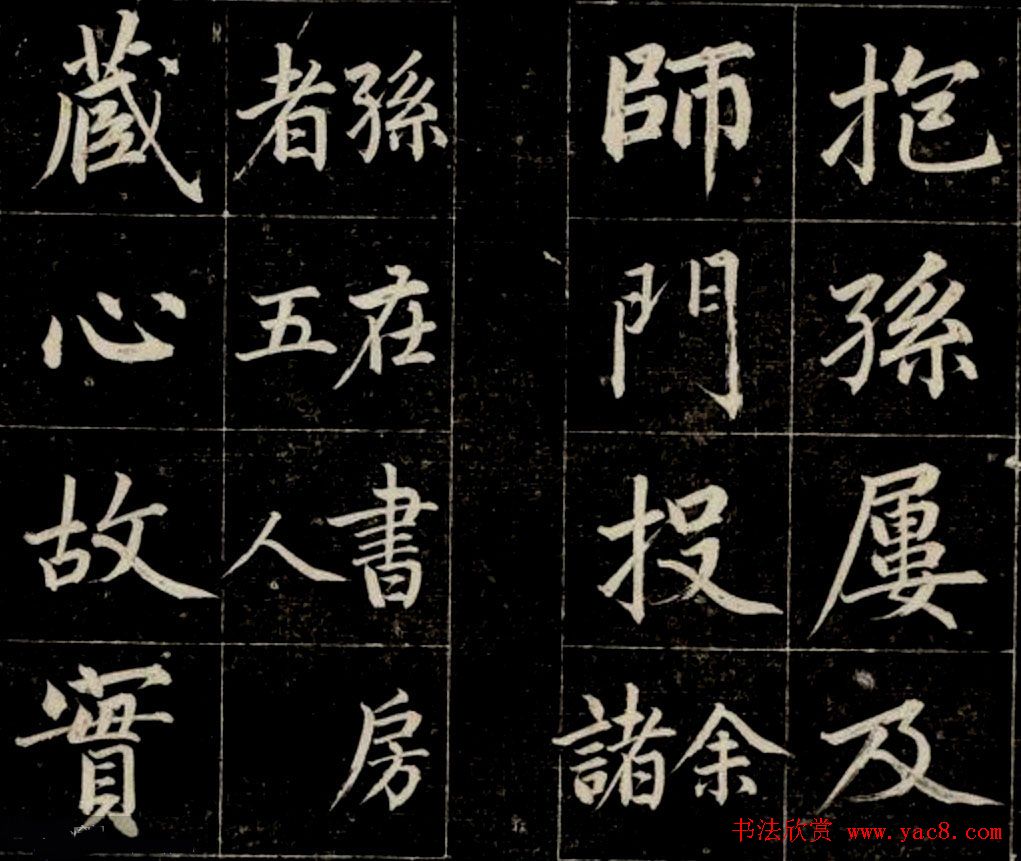 抱孫屢及
師門投余諸
孫在書房
者五人
藏心故實
书法欣赏 www.yac8.com